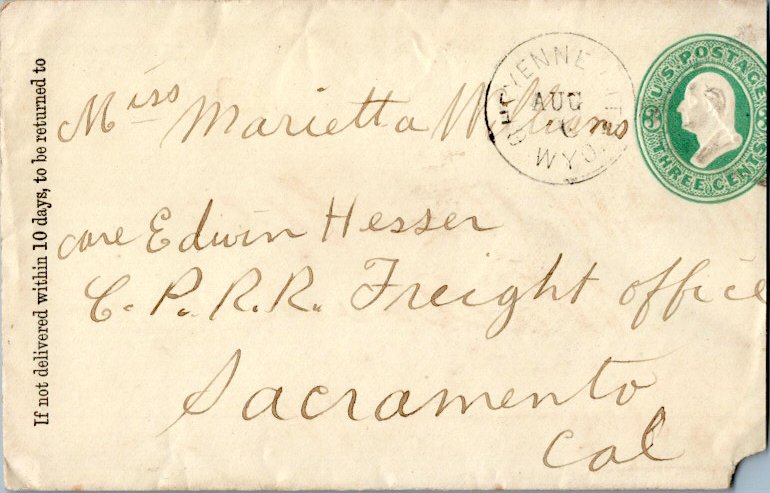 If not delivered within 10 days, to be returned to
Miss Marietta Williams
care Edwin Hesser
C. P. R. R. Freight office
Sacramento
Cal
AUG
WYO.
U.S. POSTAGE
3 3
THREE CENTS